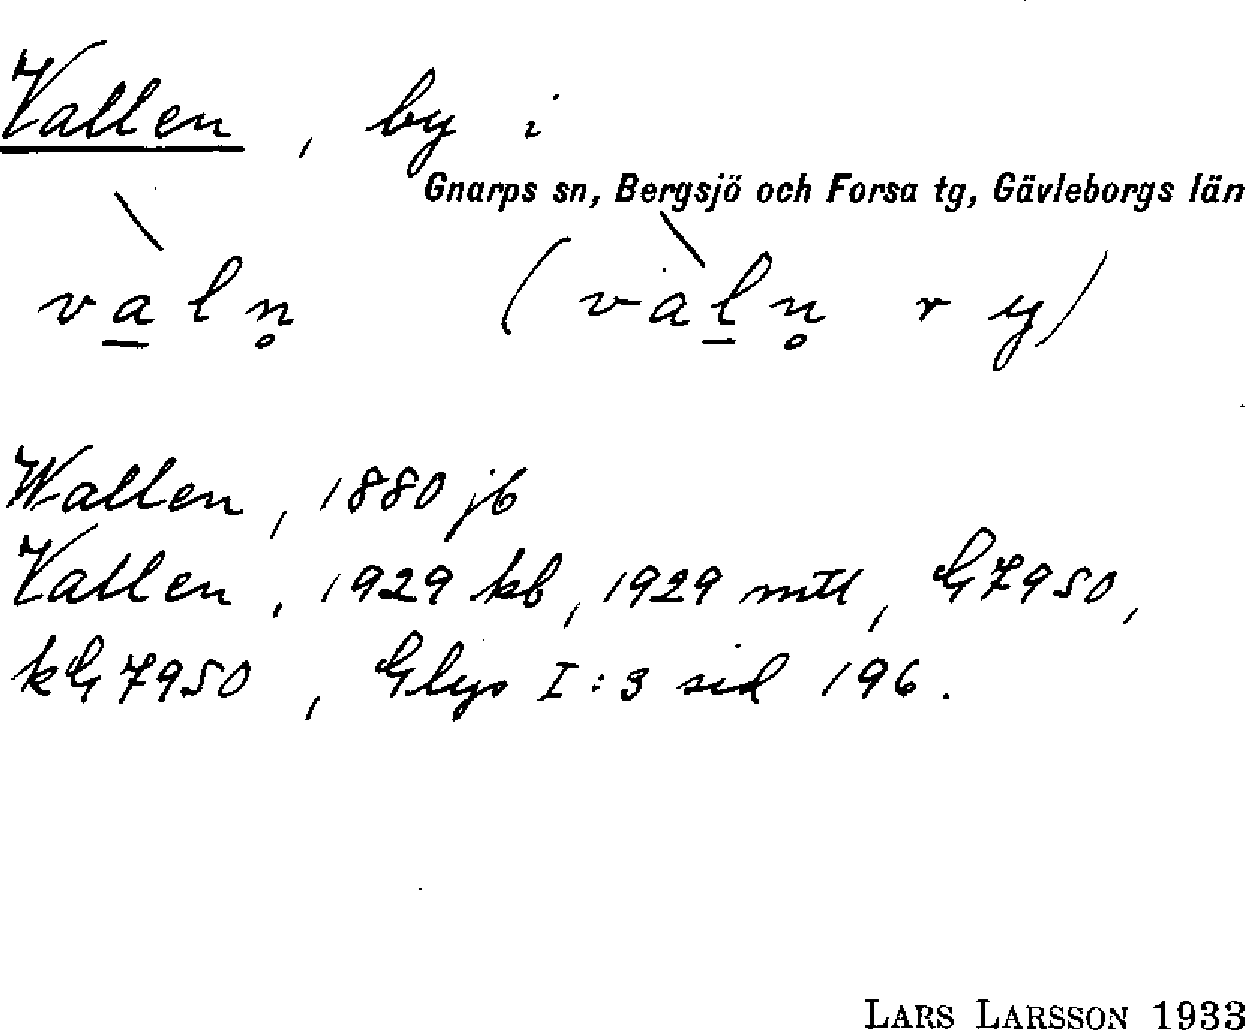 Vallen, by i
Gnarps sn, Bergsjö och Forsa tg, Gävleborgs län
\ va̲ln̥ (\ val̲n̥ r y)
Wallen, 1880 jb
Vallen, 1929 kb, 1929 mtl, G7950,
kG7950, Glys I:3 sid 196.
LARS LARSSON 1933